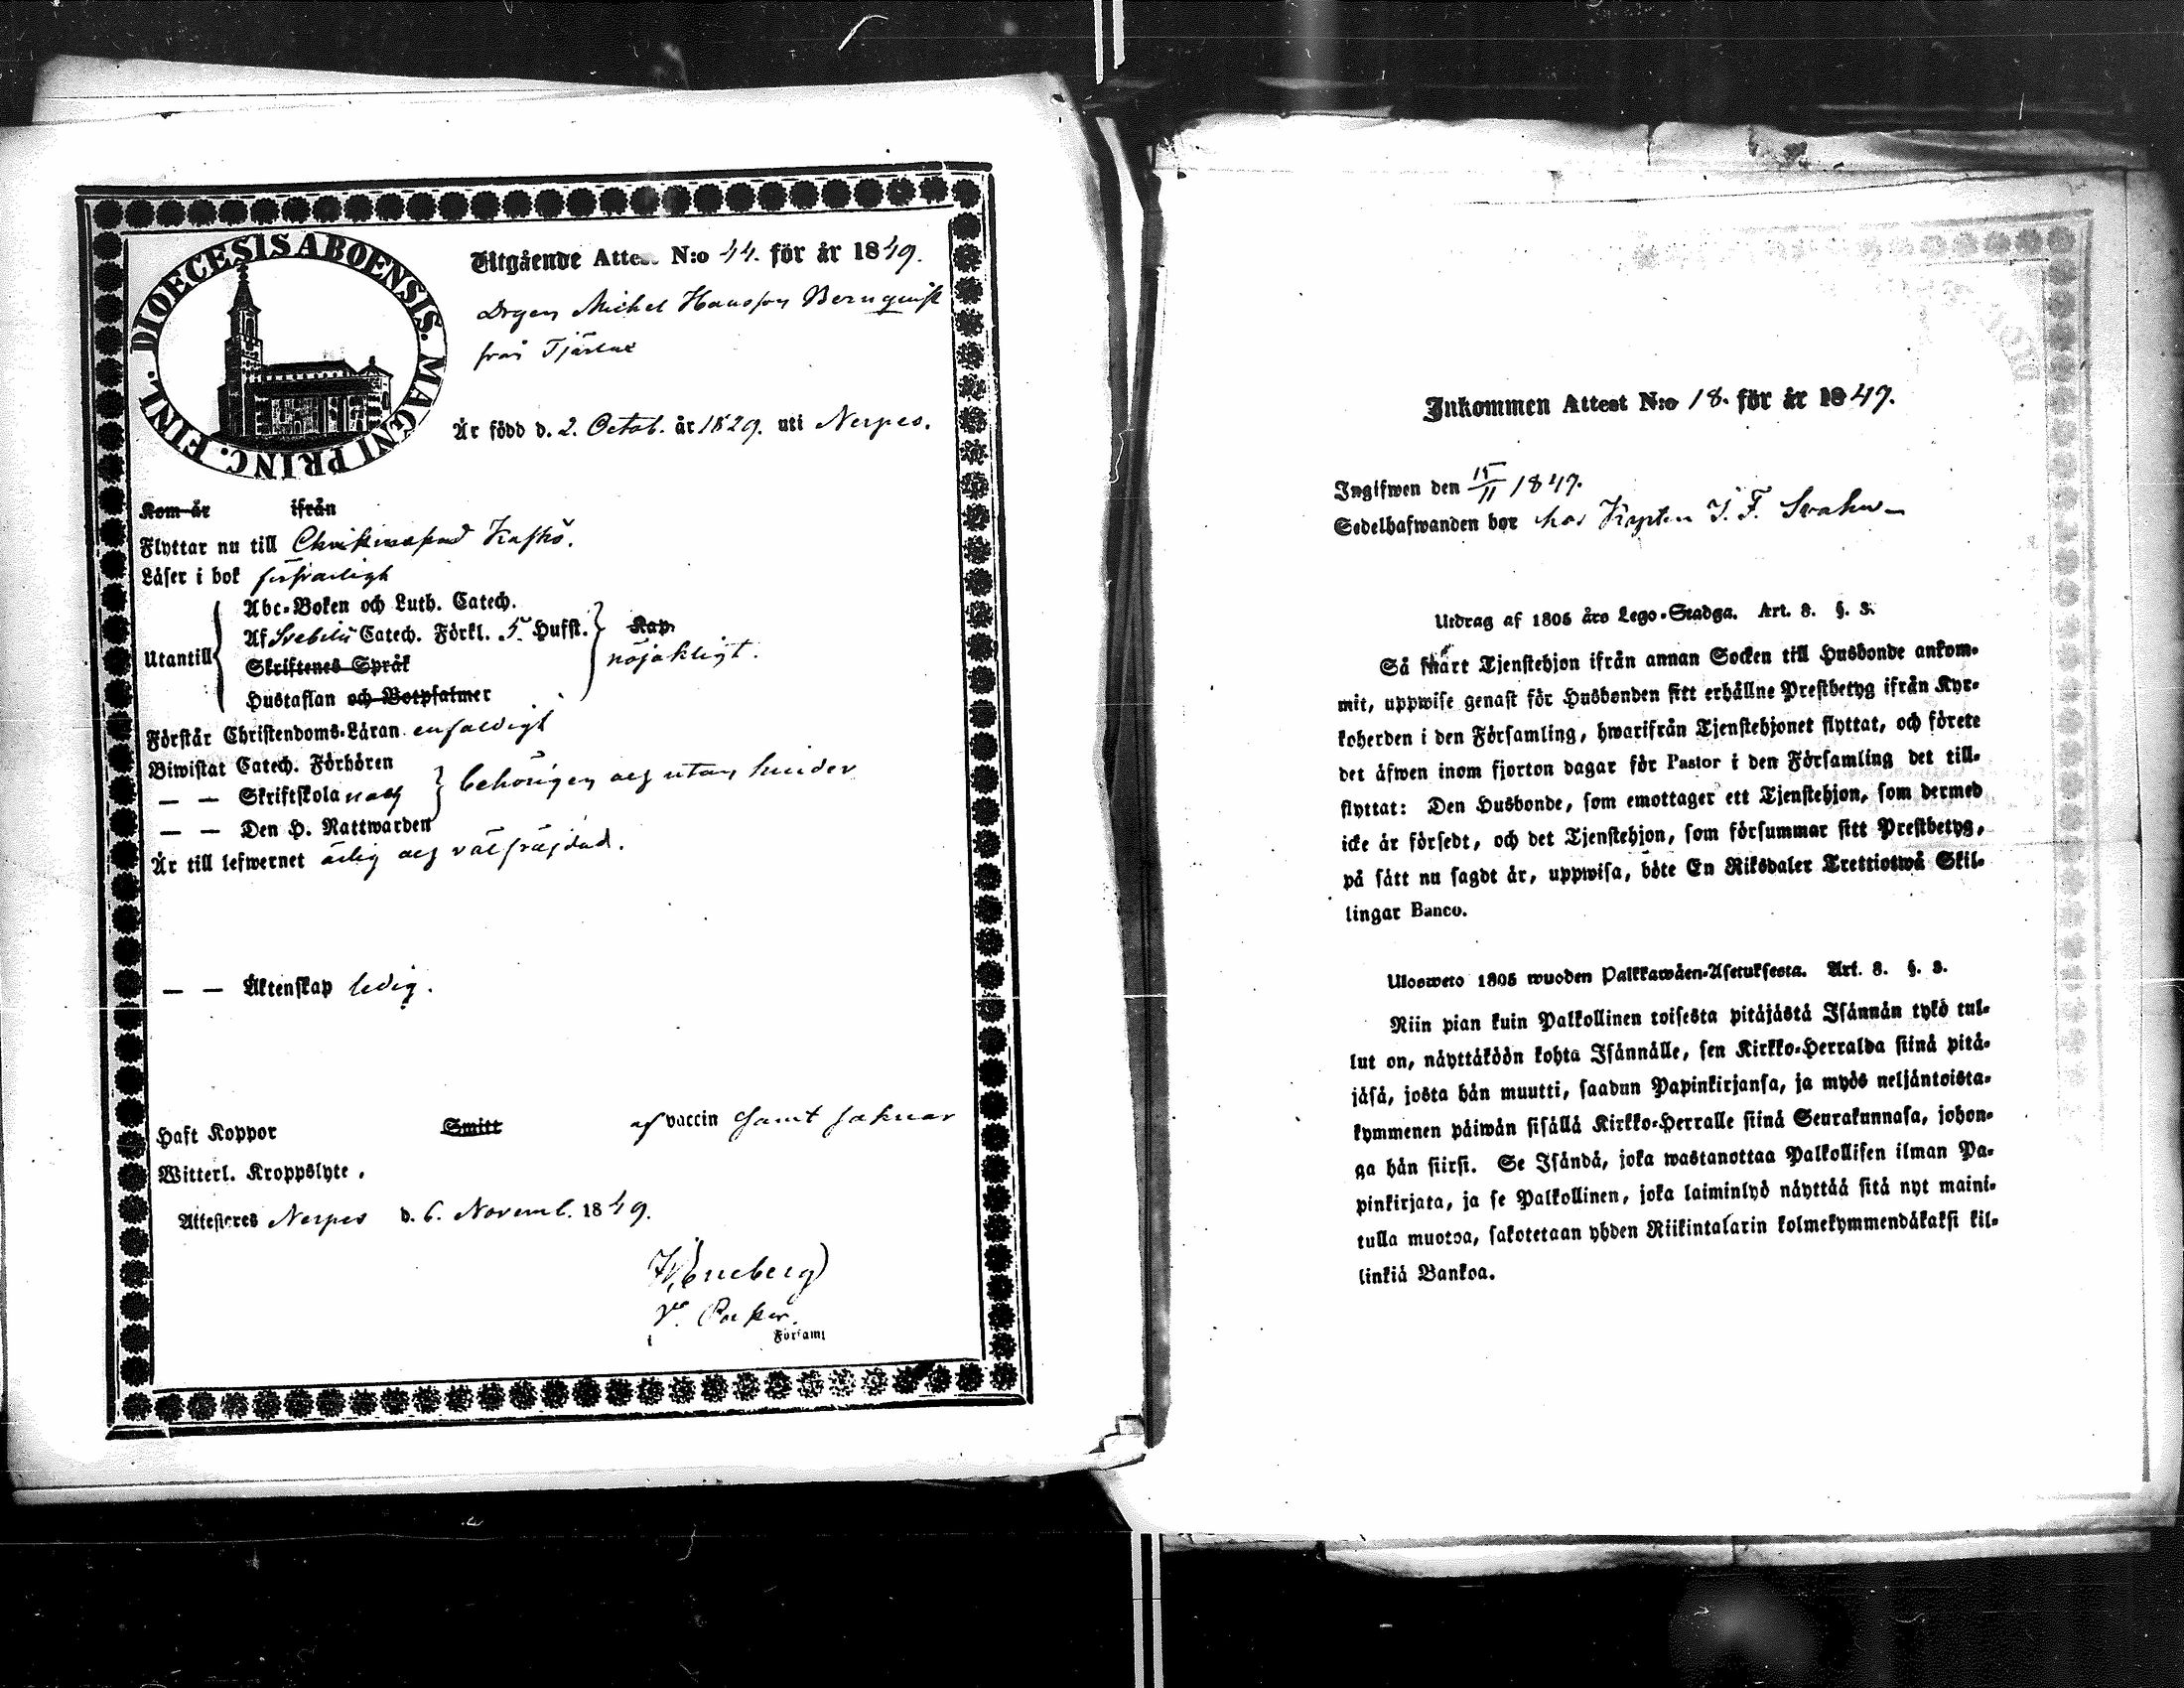 DIOECESIS ABOENSIS. MAGNI PRINC. FINL.
Utgående Attest N:o 44. för år 1849.
Drgen Michel Hansson Bernquist
från Tjärlax
Är född d. 2. Octob. år 1829. uti Nerpes.
Kom år ifrån
Flyttar nu till Christinestad Kaskö.
Läser i bok försvarligt
Abc-Boken och Luth. Catech.
Af Svebilii Catech. Förkl. 5. Hufst. Kap.
Utantill
Skriftenes Språk nöjaktigt.
Hustaflan och Botpsalmer
Förstår Christendoms-Läran enfaldigt
Biwistat Catech. Förhören
— — Skriftskola behörigen och utan hinder
— — Den H. Nattwarden
Är till lefwernet ärlig och välfräjdad.
— — Äktenskap ledig.
Haft Koppor Smitt af vaccin samt saknar
Witterl. Kroppslyte.
Attesteras Nerpes d. 6. Novemb. 1849.
V. Pastor.
Församl
Inkommen Attest N:o 18. för år 1847.
Ingifwen den 15/11 1847.
Sedelhafwanden bor hos Kapten J. F. Svahn
Utdrag af 1805 års Lego-Stadga. Art. 8. §. 3.
Så snart Tjenstehjon ifrån annan Socken till Husbonde ankom-
mit, uppwise genast för Husbonden sitt erhållne Prestbetyg ifrån Kyr-
koherden i den Församling, hwarifrån Tjenstehjonet flyttat, och förete
det äfwen inom fjorton dagar för Pastor i den Församling det till-
flyttat: Den Husbonde, som emottager ett Tjenstehjon, som dermed
icke är försedt, och det Tjenstehjon, som försummar sitt Prestbetyg,
på sätt nu sagdt är, uppwisa, böte En Riksdaler Trettiotwå Skil-
lingar Banco.
Ulosweto 1805 wuoden Palkkawäen-Asetuksesta. Art. 8. §. 3.
Niin pian kuin Palkollinen toisesta pitäjästä Isännän tykö tul-
lut on, näyttäköön kohta Isännälle, sen Kirkko-Herralda siinä pitä-
jäsä, josta hän muutti, saadun Papinkirjansa, ja myös neljäntoista-
kymmenen päiwän sisällä Kirkko-Herralle siinä Seurakunnasa, johon-
ga hän siirsi. Se Isändä, joka wastanottaa Palkollisen ilman Pa-
pinkirjata, ja se Palkollinen, joka laiminlyö näyttää sitä nyt maini-
tulla muotoa, sakotetaan yhden Riikintalarin kolmekymmendäkaksi kil-
linkiä Bankoa.